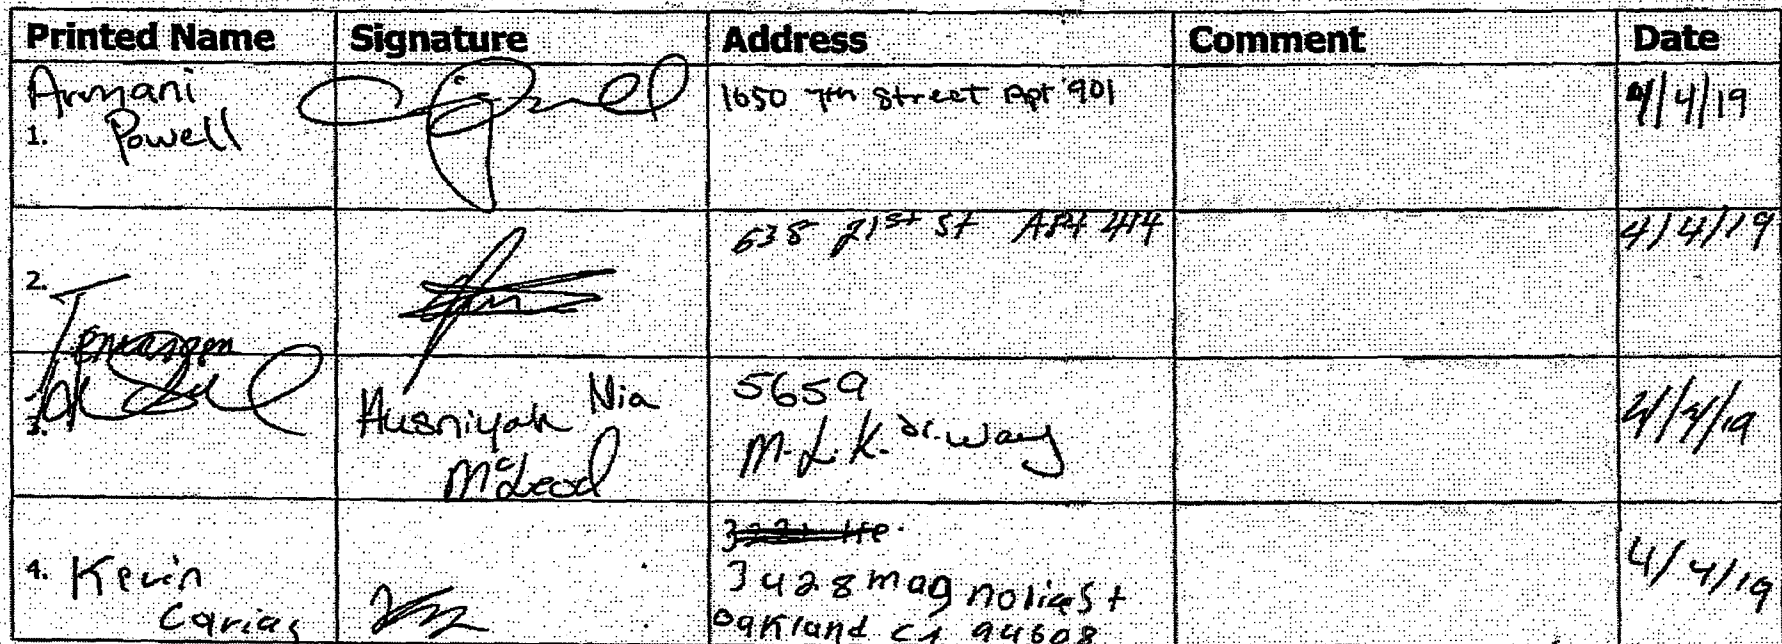 Printed Name Signature Address Comment Date
Armani
1. Powell
1650 7th Street Apt 901
4/4/19
2.
638 21st St APt 414
4/4/19
3.
Husniyah Nia
McLeod
5659
M.L.K. Jr. way
4/4/19
4. Kevin
Carias
3428 magnolia St
Oakland CA 94608
4/4/19